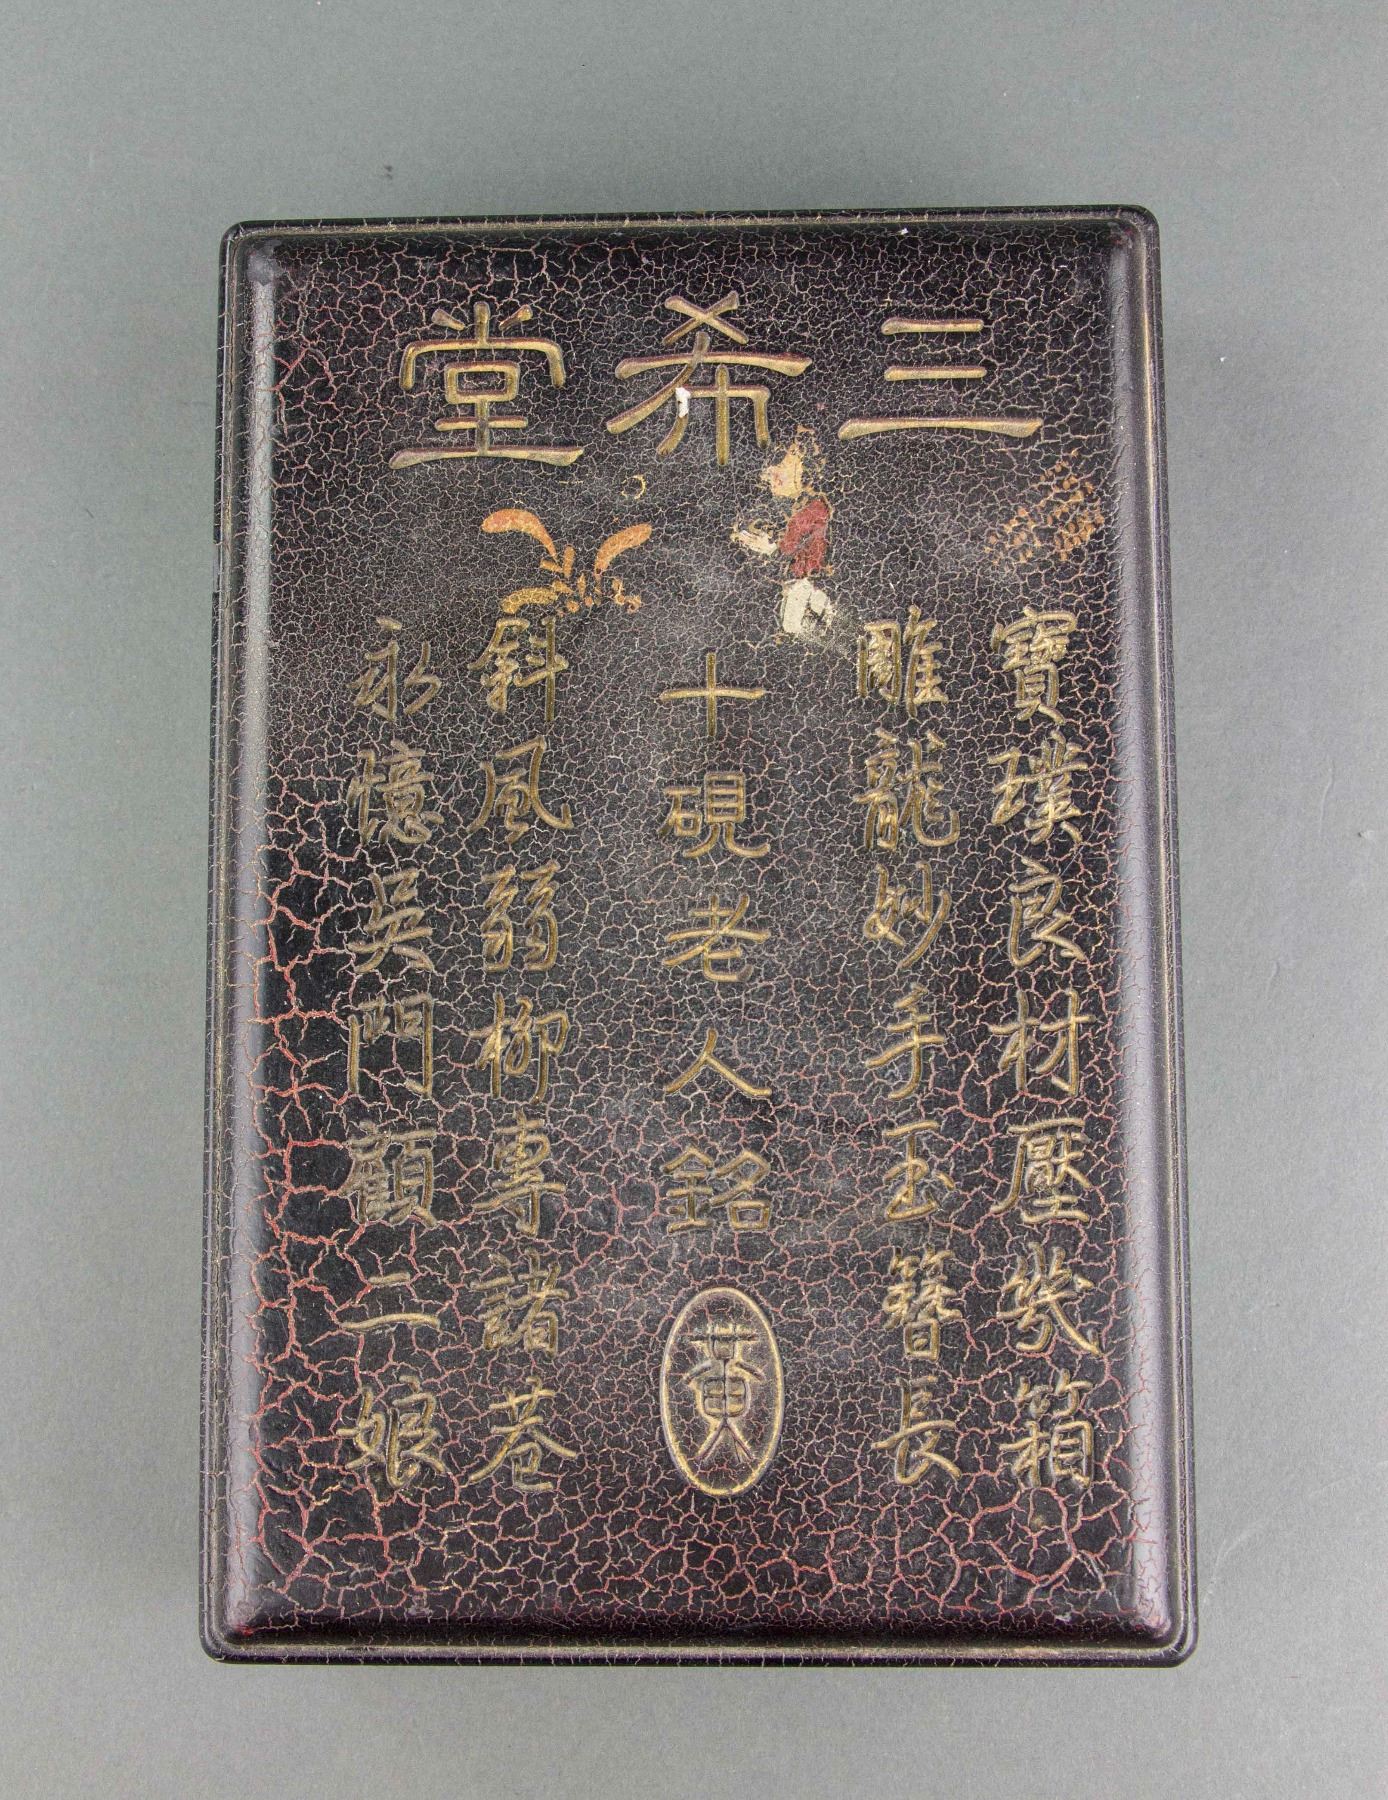 三希堂
寶璞良材壓幾箱
雕龍妙手玉簪長
十硯老人銘
黃
斜風弱柳專諸巷
永憶吳門顧二娘